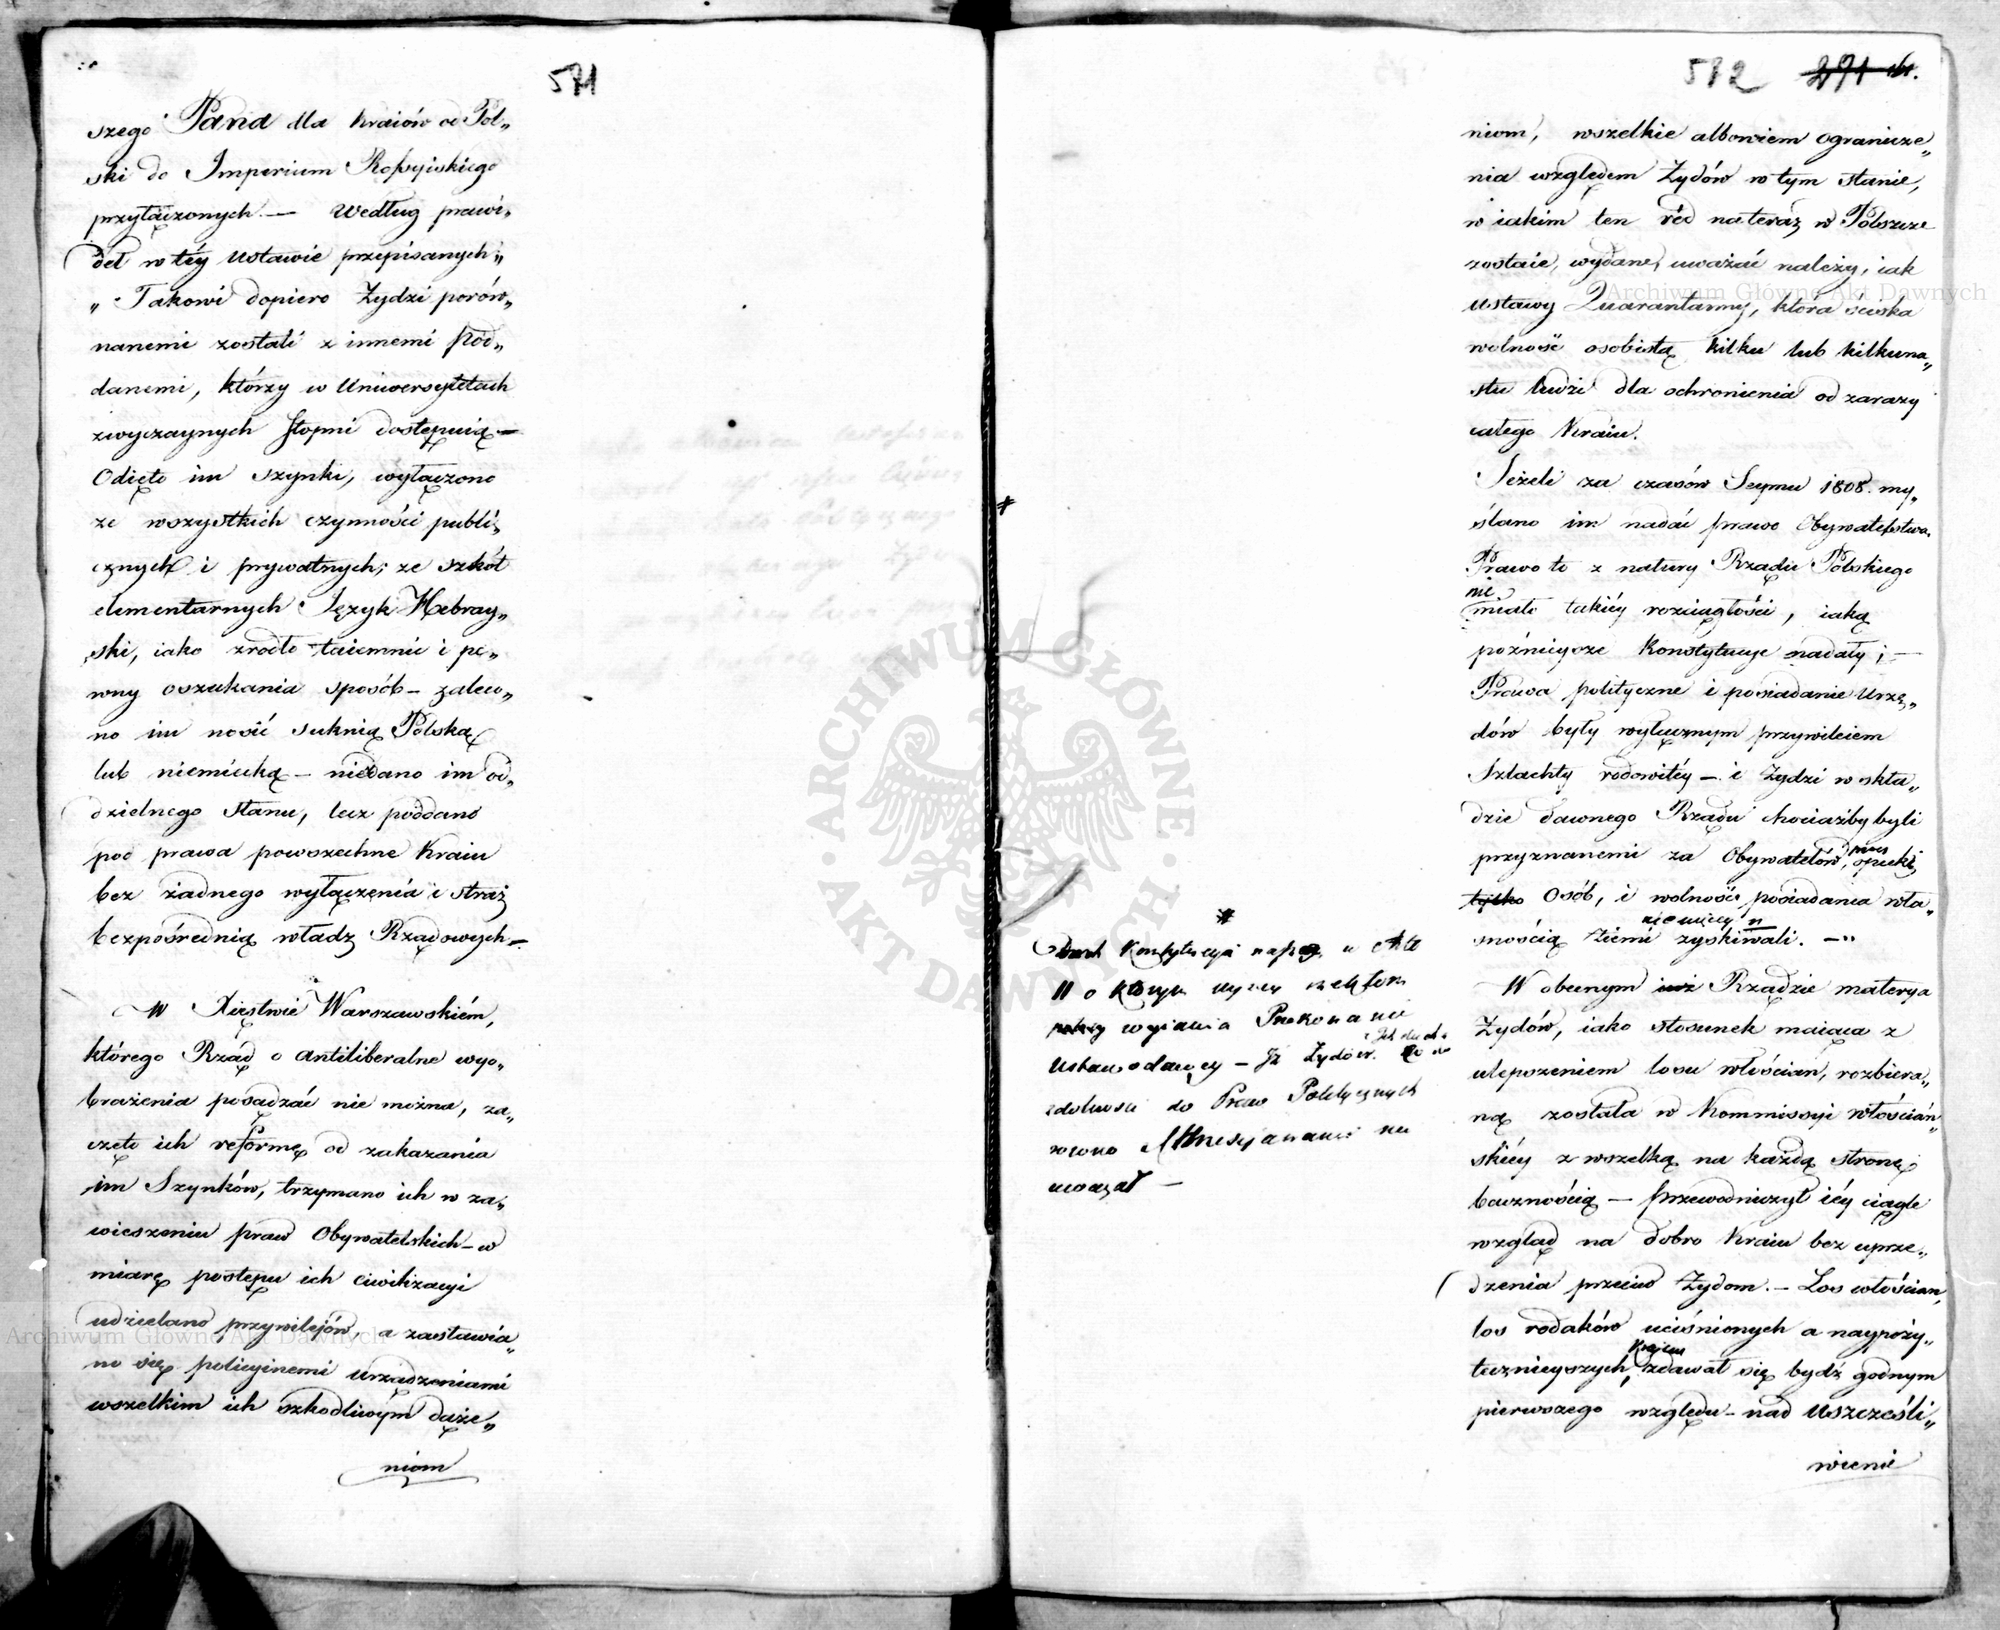 571
szego Pana dla Kraiów od Pol„
ski do Imperium Rossyiskiego
przyłączonych. — Według prawi„
deł w téy Ustawie przepisanych„
„Takowi dopiero Żydzi porów„
nanemi zostali z innemi Pod„
danemi, którzy w Uniwersytetach
zwyczaynych Stopni dostępuią —
Odięto im szynki, wyłączono
ze wszystkich czynności publi„
cznych i prywatnych; ze szkół
elementarnych Język Hebray„
ski, iako zrodło taiemnic i pe„
wny oszukania sposób — zaleco„
no im nosić suknią Polską
lub niemiecką — niedano im od„
dzielnego Stanu, lecz poddano
pod prawa powszechne Kraiu
bez żadnego wyłączenia i straż
bezpośrednią władz Rządowych —
W Xięstwie Warszawskiém,
którego Rząd o antiliberalne wyo„
brażenia posądzać nie można, za„
częto ich reformę od zakazania
im Szynków, trzymano ich w za„
wieszeniu praw Obywatelskich — w
miarę postępu ich Ciwilizacyi
udzielano przywilejów, a zastawia„
no się policyinemi urządzeniami
wszelkim ich szkodliwym dąże„
niom
572 271
niom, wszelkie albowiem ogranicze„
nia względem Żydów w tym stanie,
w iakim ten ród na teraz w Polszcze
zostaie, wydane, uważać należy, iak
ustawy Quarantanny, która ściska
wolność osobistą kilku lub kilkuna„
stu ludzi dla ochronienia od zarazy
całego Kraiu.
Jeżeli za czasów Seymu 1808. my„
ślano im nadać prawo Obywatelstwa.
Prawo to z natury Rządu Polskiego
nie
miało takiéy rozciągłości, iaką
późnieysze Konstytucye nadały; —
Prawa polityczne i posiadanie Urzę„
dów były wyłącznym przywileiem
Szlachty rodowitéy — i Żydzi w skła„
dzie dawnego Rządu chociażby byli
przyznanemi za Obywatelów, prócz opieki
tylko Osób, i wolność posiadania wła„
nic więcéy n
snością Ziemi zyskiwali. —
W obecnym iuż Rządzie materya
Żydów, iako stosunek maiąca z
ulepszeniem losu włościan, rozbiera„
ną została w Kommissyi włościań„
skiéy z wszelką na każdą stronę
bacznością — Przewodniczył iéy ciągle
wzgląd na dobro Kraiu bez uprze„
dzenia przeciw Żydom. — Los włościan,
los rodaków uciśnionych a naypoży„
Krajowi
tecznieyszych, zdawał się bydź godnym
pierwszego względu — nad uszczęśli„
wienie
#
Konstytucyi w Akt
11 o którym wyżey
wyiawia Przekonanie
Ustawodawcy — Iż Żydów
zdolności do Praw Politycznych
równo z Chrześcijanami nie
uważał —
Archiwum Główne Akt Dawnych
Archiwum Główne Akt Dawnych
· ARCHIWUM GŁÓWNE · AKT DAWNYCH